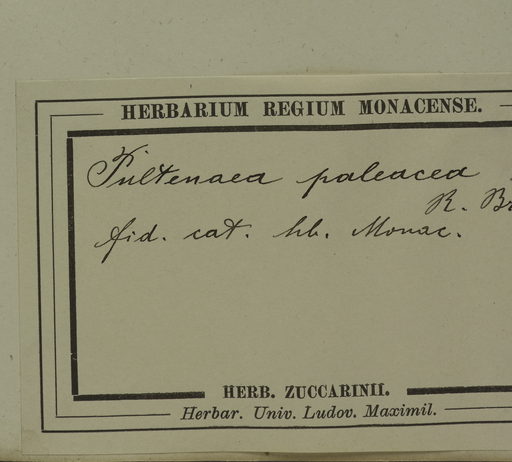 HERBARIUM REGIUM MONACENSE.
Pultenaea paleacea
R. Br
fid. cat. hb. Monac.
HERB. ZUCCARINII.
Herbar. Univ. Ludov. Maximil.